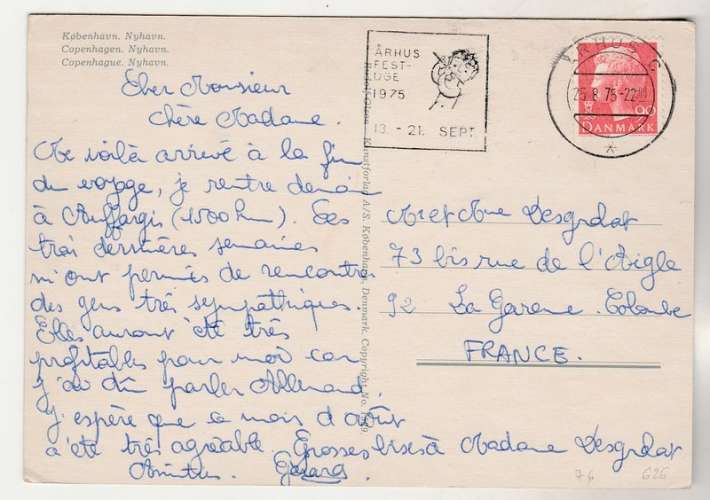 København. Nyhavn.
Copenhagen. Nyhavn.
Copenhague. Nyhavn.
Cher Monsieur
chère Madame.
Me voilà arrivé à la fin
du voyage, je rentre demain
à Auffargis (1500 km). Ces
trois dernières semaines
m'ont permis de rencontrer
des gens très sympathiques.
Elles auront été très
profitables pour moi car
j'ai dû parler Allemand.
J'espère que ce mois d'août
a été très agréable. Grosses bises à Madame Desgrdat
Amitiés. Gérard
ÅRHUS
FEST-
UGE
1975
13 - 21. SEPT.
ÅRHUS C
25.8.75-22
00
DANMARK
Kunstforlag A/S. København, Denmark. Copyright No.
Mr et Mme Desgrdat
73 bis rue de l'Aigle
92 La Garenne. Colombe
FRANCE.
76
626